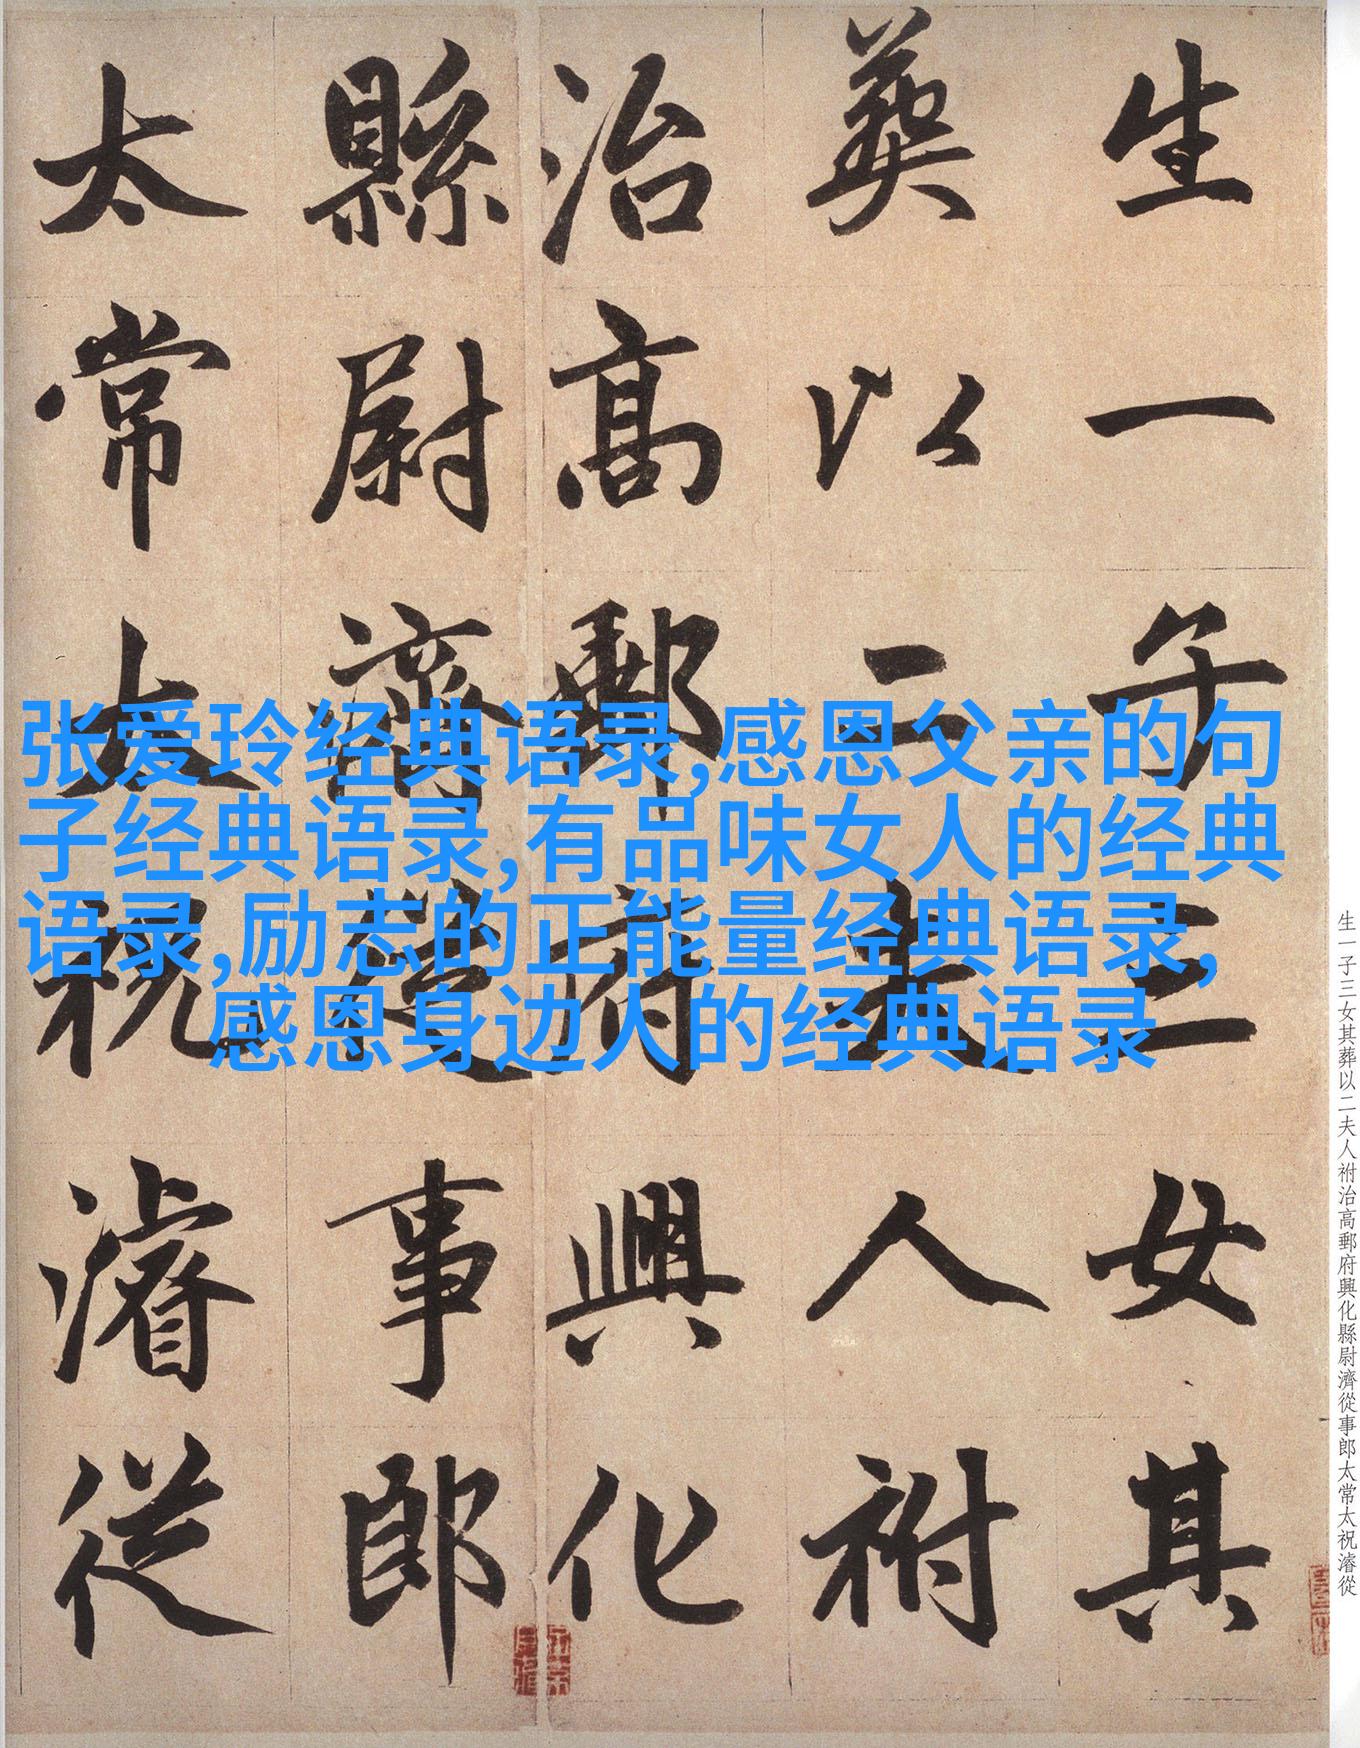 生一子三女其
葬以二夫人祔
治高郵府興化
縣尉濟從事郎
太常太祝濬從
张爱玲经典语录,感恩父亲的句
子经典语录,有品味女人的经典
语录,励志的正能量经典语录,
感恩身边人的经典语录
生一子三女其葬以二夫人祔治高郵府興化縣尉濟從事郎太常太祝濬從